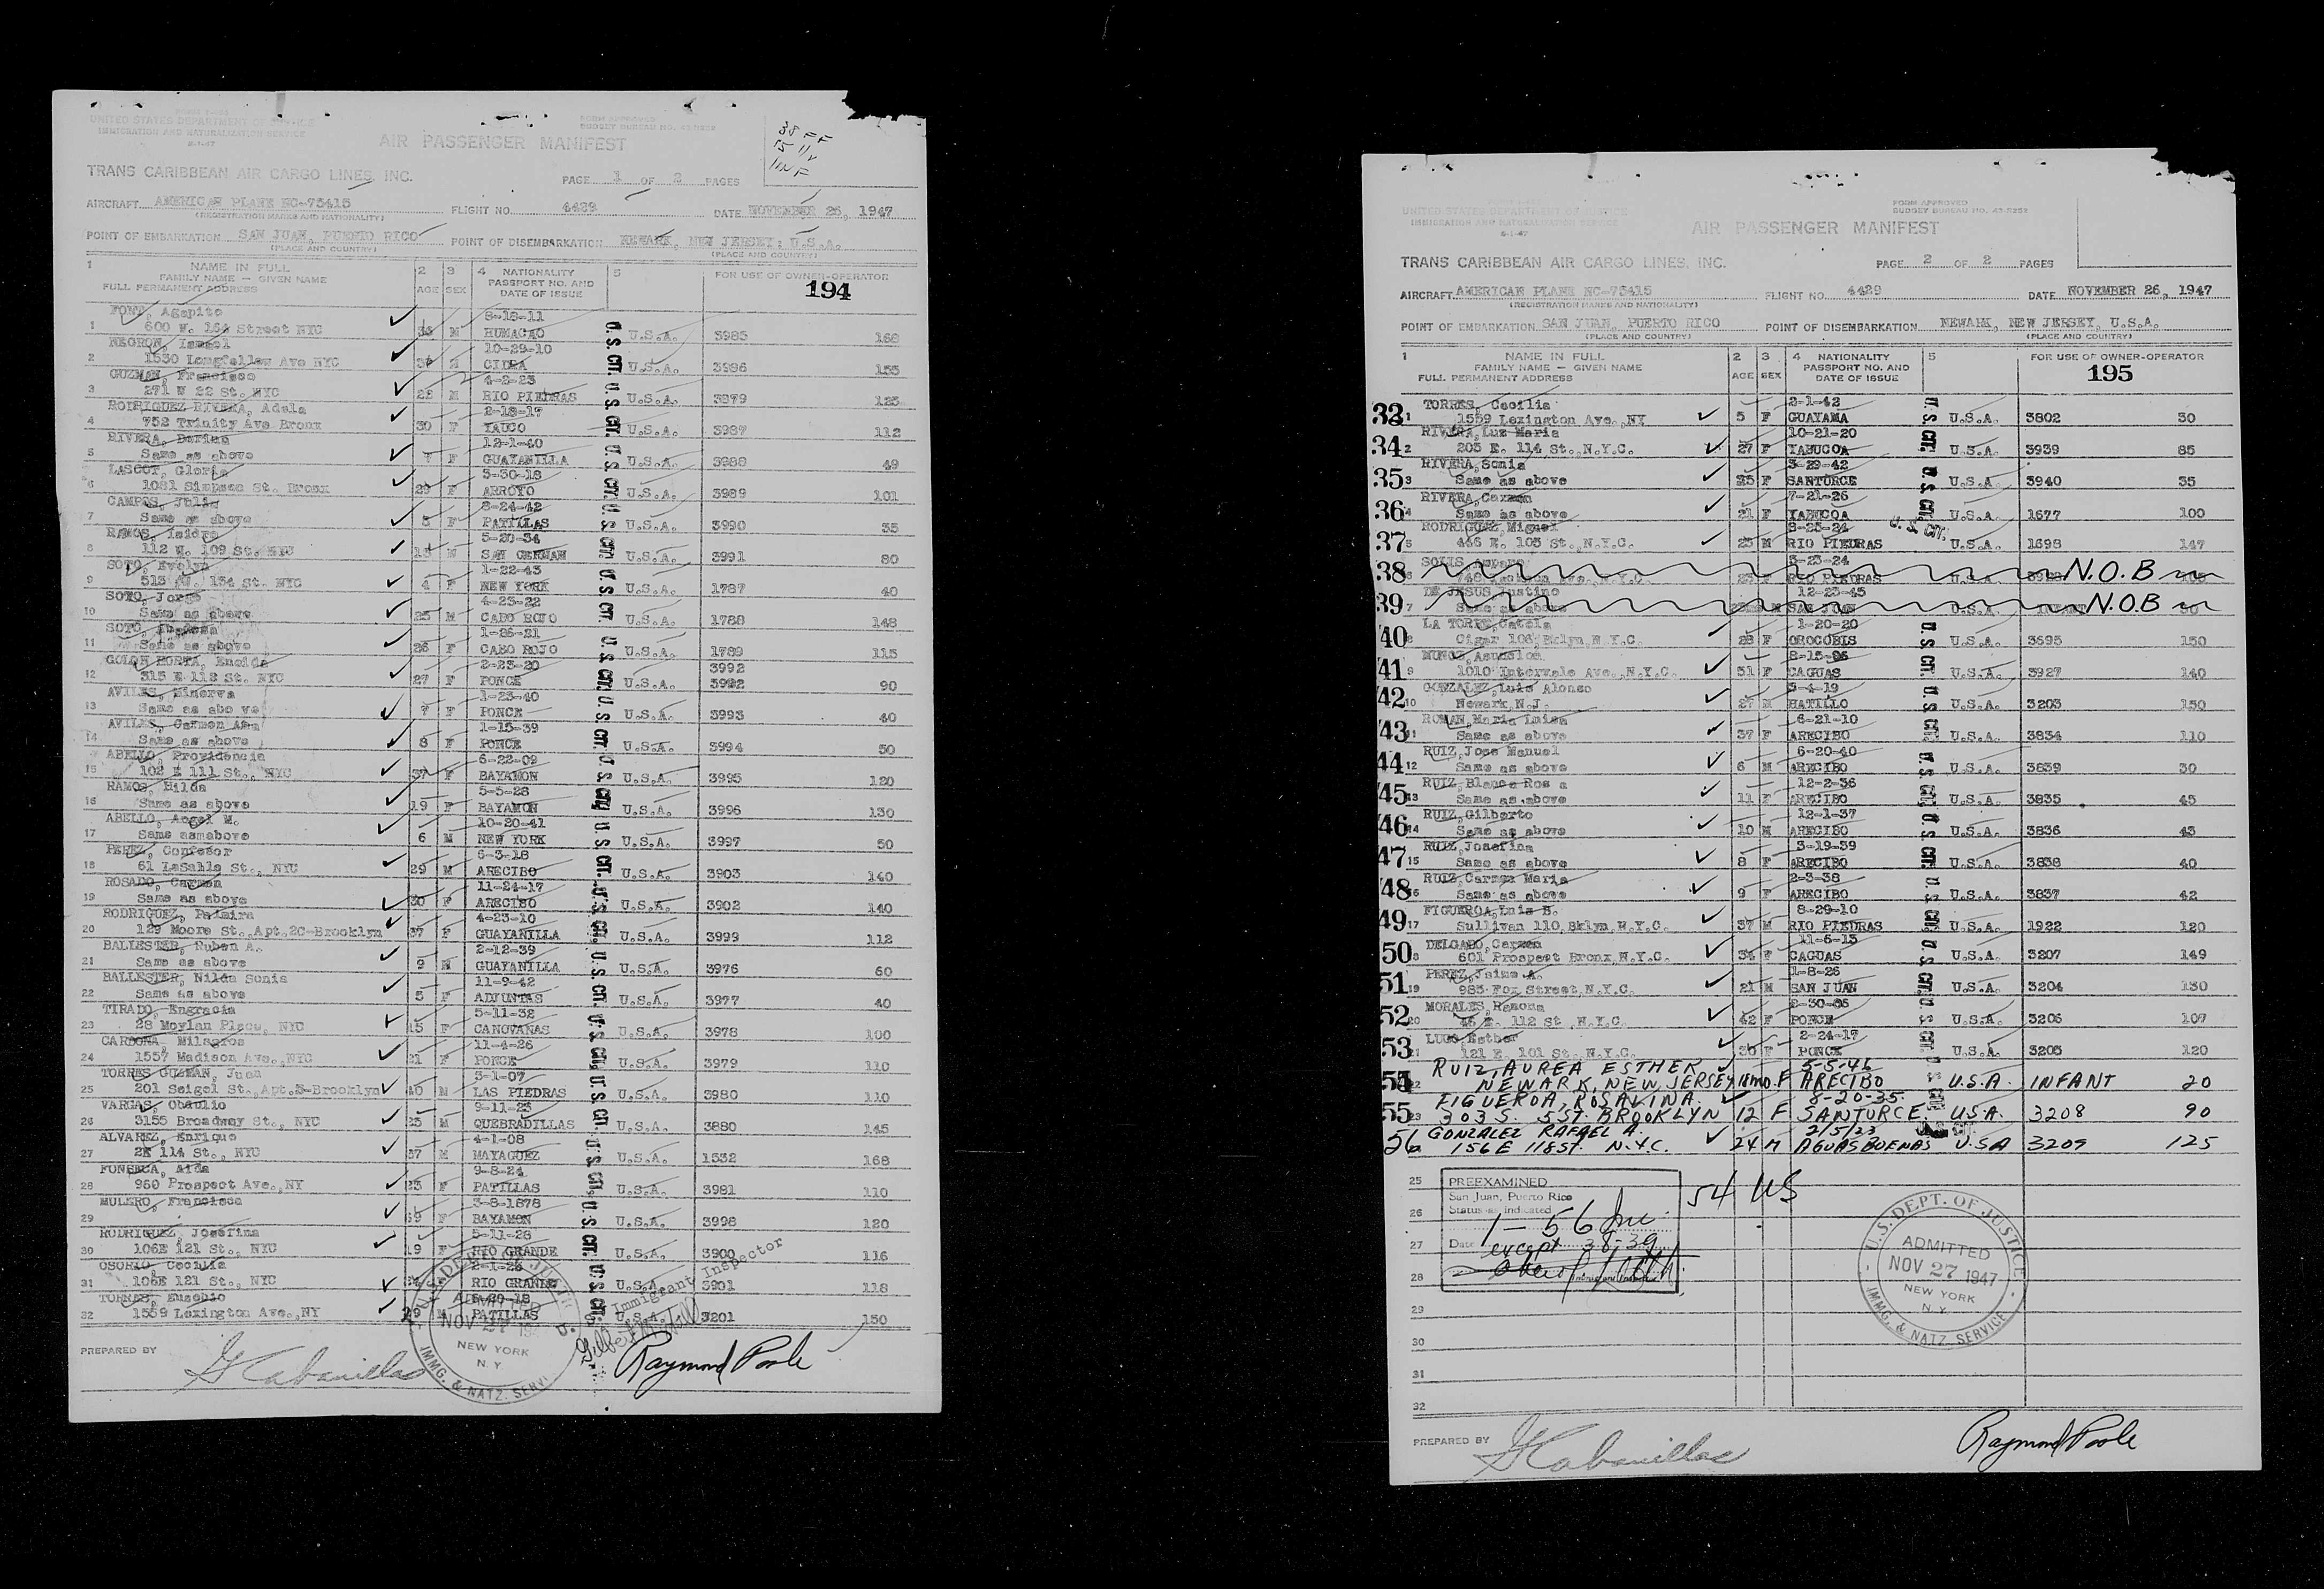 FORM I-466
UNITED STATES DEPARTMENT OF JUSTICE
IMMIGRATION AND NATURALIZATION SERVICE
FORM APPROVED
BUDGET BUREAU NO.
AIR PASSENGER MANIFEST
38 FF
15 1/2
1 INF
TRANS CARIBBEAN AIR CARGO LINES, INC.
PAGE 1 OF 2 PAGES
AIRCRAFT AMERICAN PLANE NC-75415 FLIGHT NO. 4429 DATE NOVEMBER 26, 1947
(REGISTRATION MARKS AND NATIONALITY)
POINT OF EMBARKATION SAN JUAN, PUERTO RICO POINT OF DISEMBARKATION NEWARK, NEW JERSEY; U.S.A.
(PLACE AND COUNTRY) (PLACE AND COUNTRY)
1 NAME IN FULL 2 3 4 NATIONALITY 5 FOR USE OF OWNER-OPERATOR
FAMILY NAME — GIVEN NAME PASSPORT NO. AND
FULL PERMANENT ADDRESS AGE SEX DATE OF ISSUE 194
FONT, Agapito 8-18-11
1 600 W. 164 Street NYC 36 M HUMACAO U.S.A. 3985 168
NEGRON, Ismael 10-29-10
2 1530 Longfellow Ave NYC M CIDRA U.S.A. 3986 155
GUZMAN, Francisco 4-2-23
3 271 W 22 St. NYC M RIO PIEDRAS U.S.A. 3879 125
RODRIGUEZ RIVERA, Adela 2-18-17
4 752 Trinity Ave Bronx 30 F YAUCO U.S.A. 3987 112
RIVERA, 12-1-40
5 Same as above F GUAYANILLA U.S.A. 3988 49
LASCOT, Gloria 3-30-18
6 1081 Simpson St. Bronx 29 F ARROYO U.S.A. 3989 101
CAMPOS, Julia 8-24-42
7 Same as above 5 F PATILLAS U.S.A. 3990 35
RAMOS, Isidro 5-20-34
8 112 W. 109 St. NYC 13 M SAN GERMAN U.S.A. 3991 80
SOTO, Evelyn 1-22-43
9 513 W. 134 St. NYC 4 F NEW YORK U.S.A. 1787 40
SOTO, Jorge 4-23-22
10 Same as above 25 M CABO ROJO U.S.A. 1788 148
SOTO, 1-26-21
11 Same as above 26 F CABO ROJO U.S.A. 1789 115
COLON HORTA, Eneida 2-23-20 3992
12 315 E 118 St. NYC 27 F PONCE U.S.A. 3992 90
AVILES, Minerva 1-23-40
13 Same as abo ve 7 F PONCE U.S.A. 3993 40
AVILES, Carmen Ana 1-15-39
14 Same as above 8 F PONCE U.S.A. 3994 50
ABELLO, Providencia 6-22-09
15 102 E 111 St., NYC 37 F BAYAMON U.S.A. 3995 120
RAMOS, Hilda 5-5-28
16 Same as above 19 F BAYAMON U.S.A. 3996 130
ABELLO, Angel M. 10-20-41
17 Same asmabove 6 M NEW YORK U.S.A. 3997 50
PEREZ, Confesor 6-3-18
18 61 LaSalle St., NYC 29 M ARECIBO U.S.A. 3903 140
ROSADO, Carmen 11-24-17
19 Same as above 30 F ARECIBO U.S.A. 3902 140
RODRIGUEZ, Palmira 4-23-10
20 129 Moore St.,Apt.2C-Brooklyn 37 F GUAYANILLA U.S.A. 3999 112
BALLESTER, Ruben A. 2-12-39
21 Same as above 9 M GUAYANILLA U.S.A. 3976 60
BALLESTER, Nilda Sonia 11-9-42
22 Same as above 5 F ADJUNTAS U.S.A. 3977 40
TIRADO, Engracia 5-11-32
23 28 Moylan Place, NYC 15 F CANOVANAS U.S.A. 3978 100
CARDONA, Milagros 11-4-26
24 1557 Madison Ave.,NYC 21 F PONCE U.S.A. 3979 110
TORRES GUZMAN, Juan 3-1-07
25 201 Seigel St.,Apt.3-Brooklyn 40 M LAS PIEDRAS U.S.A. 3980 110
VARGAS, Obdulio 9-11-23
26 3155 Broadway St., NYC 25 M QUEBRADILLAS U.S.A. 3880 145
ALVAREZ, Enrique 4-1-08
27 2E 114 St., NYC 37 M MAYAGUEZ U.S.A. 1532 168
FONSECA, Aida 9-8-24
28 960 Prospect Ave.,NY 23 F PATILLAS U.S.A. 3981 110
MULERO, Francisca 3-8-1878
29 69 F BAYAMON U.S.A. 3998 120
RODRIGUEZ, Josefina 5-11-28
30 106E 121 St., NYC 19 F RIO GRANDE U.S.A. 3900 116
OSORIO, Cecilia 2-1-26
31 106E 121 St., NYC F RIO GRANDE U.S.A. 3901 118
TORRES, Eusebio 8-20-18
32 1559 Lexington Ave.,NY 29 M PATILLAS U.S.A. 3201 150
U.S. CIT.
U.S. DEPT. OF JUSTICE
ADMITTED
NOV 27 1947
NEW YORK
N.Y.
IMMG. & NATZ. SERVICE
Immigrant Inspector
PREPARED BY G Cabanillas Raymond Poole
UNITED STATES DEPARTMENT OF JUSTICE
IMMIGRATION AND NATURALIZATION SERVICE
FORM APPROVED
BUDGET BUREAU NO. 43-R
AIR PASSENGER MANIFEST
TRANS CARIBBEAN AIR CARGO LINES, INC.
PAGE 2 OF 2 PAGES
AIRCRAFT AMERICAN PLANE NC-75415 FLIGHT NO. 4429 DATE NOVEMBER 26, 1947
(REGISTRATION MARKS AND NATIONALITY)
POINT OF EMBARKATION SAN JUAN, PUERTO RICO POINT OF DISEMBARKATION NEWARK, NEW JERSEY, U.S.A.
(PLACE AND COUNTRY) (PLACE AND COUNTRY)
1 NAME IN FULL 2 3 4 NATIONALITY 5 FOR USE OF OWNER-OPERATOR
FAMILY NAME — GIVEN NAME PASSPORT NO. AND
FULL PERMANENT ADDRESS AGE SEX DATE OF ISSUE 195
TORRES, Cecilia 2-1-42
33 1 1559 Lexington Ave. NY 5 F GUAYAMA U.S.A. 3802 30
RIVERA, Luz Maria 10-21-20
34 2 203 E. 114 St., N.Y.C. 27 F YABUCOA U.S.A. 3939 85
RIVERA, Sonia 3-29-42
35 3 Same as above F SANTURCE U.S.A 3940 35
RIVERA, Carmen 7-21-26
36 4 Same as above 21 F YABUCOA U.S.A. 1677 100
RODRIGUEZ, Miguel 8-25-24
37 5 446 E. 105 St., N.Y.C. 23 M RIO PIEDRAS U.S.A. 1698 147
SOLIS, 3-23-24
38 6 Jackson Ave. N.Y.C. 23 F RIO PIEDRAS U.S.A. N.O.B
DE JESUS, Justino 12-23-45
39 7 Same as above M SAN JUAN U.S.A. N.O.B
LA TORRE, 1-20-20
40 8 Cigar 106, Bklyn, N.Y.C. 28 F OROCOBIS U.S.A. 3695 150
MUNOZ, Asuncion 8-15-96
41 9 1010 Intervale Ave., N.Y.C. 51 F CAGUAS U.S.A. 3927 140
GONZALEZ, Luis Alonso 3-4-19
42 10 Newark, N.J. 27 M HATILLO U.S.A. 3203 150
ROMAN, Maria Luisa 6-21-10
43 11 Same as above 37 F ARECIBO U.S.A. 3834 110
RUIZ, Jose Manuel 6-20-40
44 12 Same as above 6 M ARECIBO U.S.A. 3839 30
RUIZ, Blanca Ros a 12-2-36
45 13 Same as above 11 F ARECIBO U.S.A. 3835 45
RUIZ, Gilberto 12-1-37
46 14 Same as above 10 M ARECIBO U.S.A. 3836 43
RUIZ, Josefina 3-19-39
47 15 Same as above 8 F ARECIBO U.S.A. 3838 40
RUIZ, Carmen Maria 2-3-38
48 16 Same as above 9 F ARECIBO U.S.A. 3837 42
FIGUEROA, Luis B. 8-29-10
49 17 Sullivan 110, Bklyn, N.Y.C. 37 M RIO PIEDRAS U.S.A. 1922 120
DELGADO, Carmen 11-6-13
50 18 601 Prospect Bronx, N.Y.C. 34 F CAGUAS U.S.A. 3207 149
PEREZ, Jaime A. 1-8-26
51 19 985 Fox Street, N.Y.C. 21 M SAN JUAN U.S.A. 3204 130
MORALES, Ramona
52 20 45 E. 112 St N.Y.C. 42 F PONCE U.S.A. 3206 107
LUGO, Esther 2-24-17
53 21 121 E. 101 St. N.Y.C. 30 F PONCE U.S.A. 3205 120
RUIZ, AUREA ESTHER 5-5-46
54 22 NEWARK, NEW JERSEY 18 mo. F ARECIBO U.S.A. INFANT 20
FIGUEROA, ROSALINA. 8-20-35
55 23 303 S. 5 ST. BROOKLYN 12 F SANTURCE. U.S.A. 3208 90
GONZALEZ RAFAEL A. 2/5/23
56 156 E 118 ST. N.Y.C. 24 M AGUAS BUENAS U.S.A 3209 125
U.S. CIT.
25 PREEXAMINED 54 US
San Juan, Puerto Rico
26 Status as indicated
1 - 56 Inc.
27 Date except 38-39
28
29
30
31
32
U.S. DEPT. OF JUSTICE
ADMITTED
NOV 27 1947
NEW YORK
N.Y.
IMMG. & NATZ. SERVICE
PREPARED BY G Cabanillas Raymond Poole